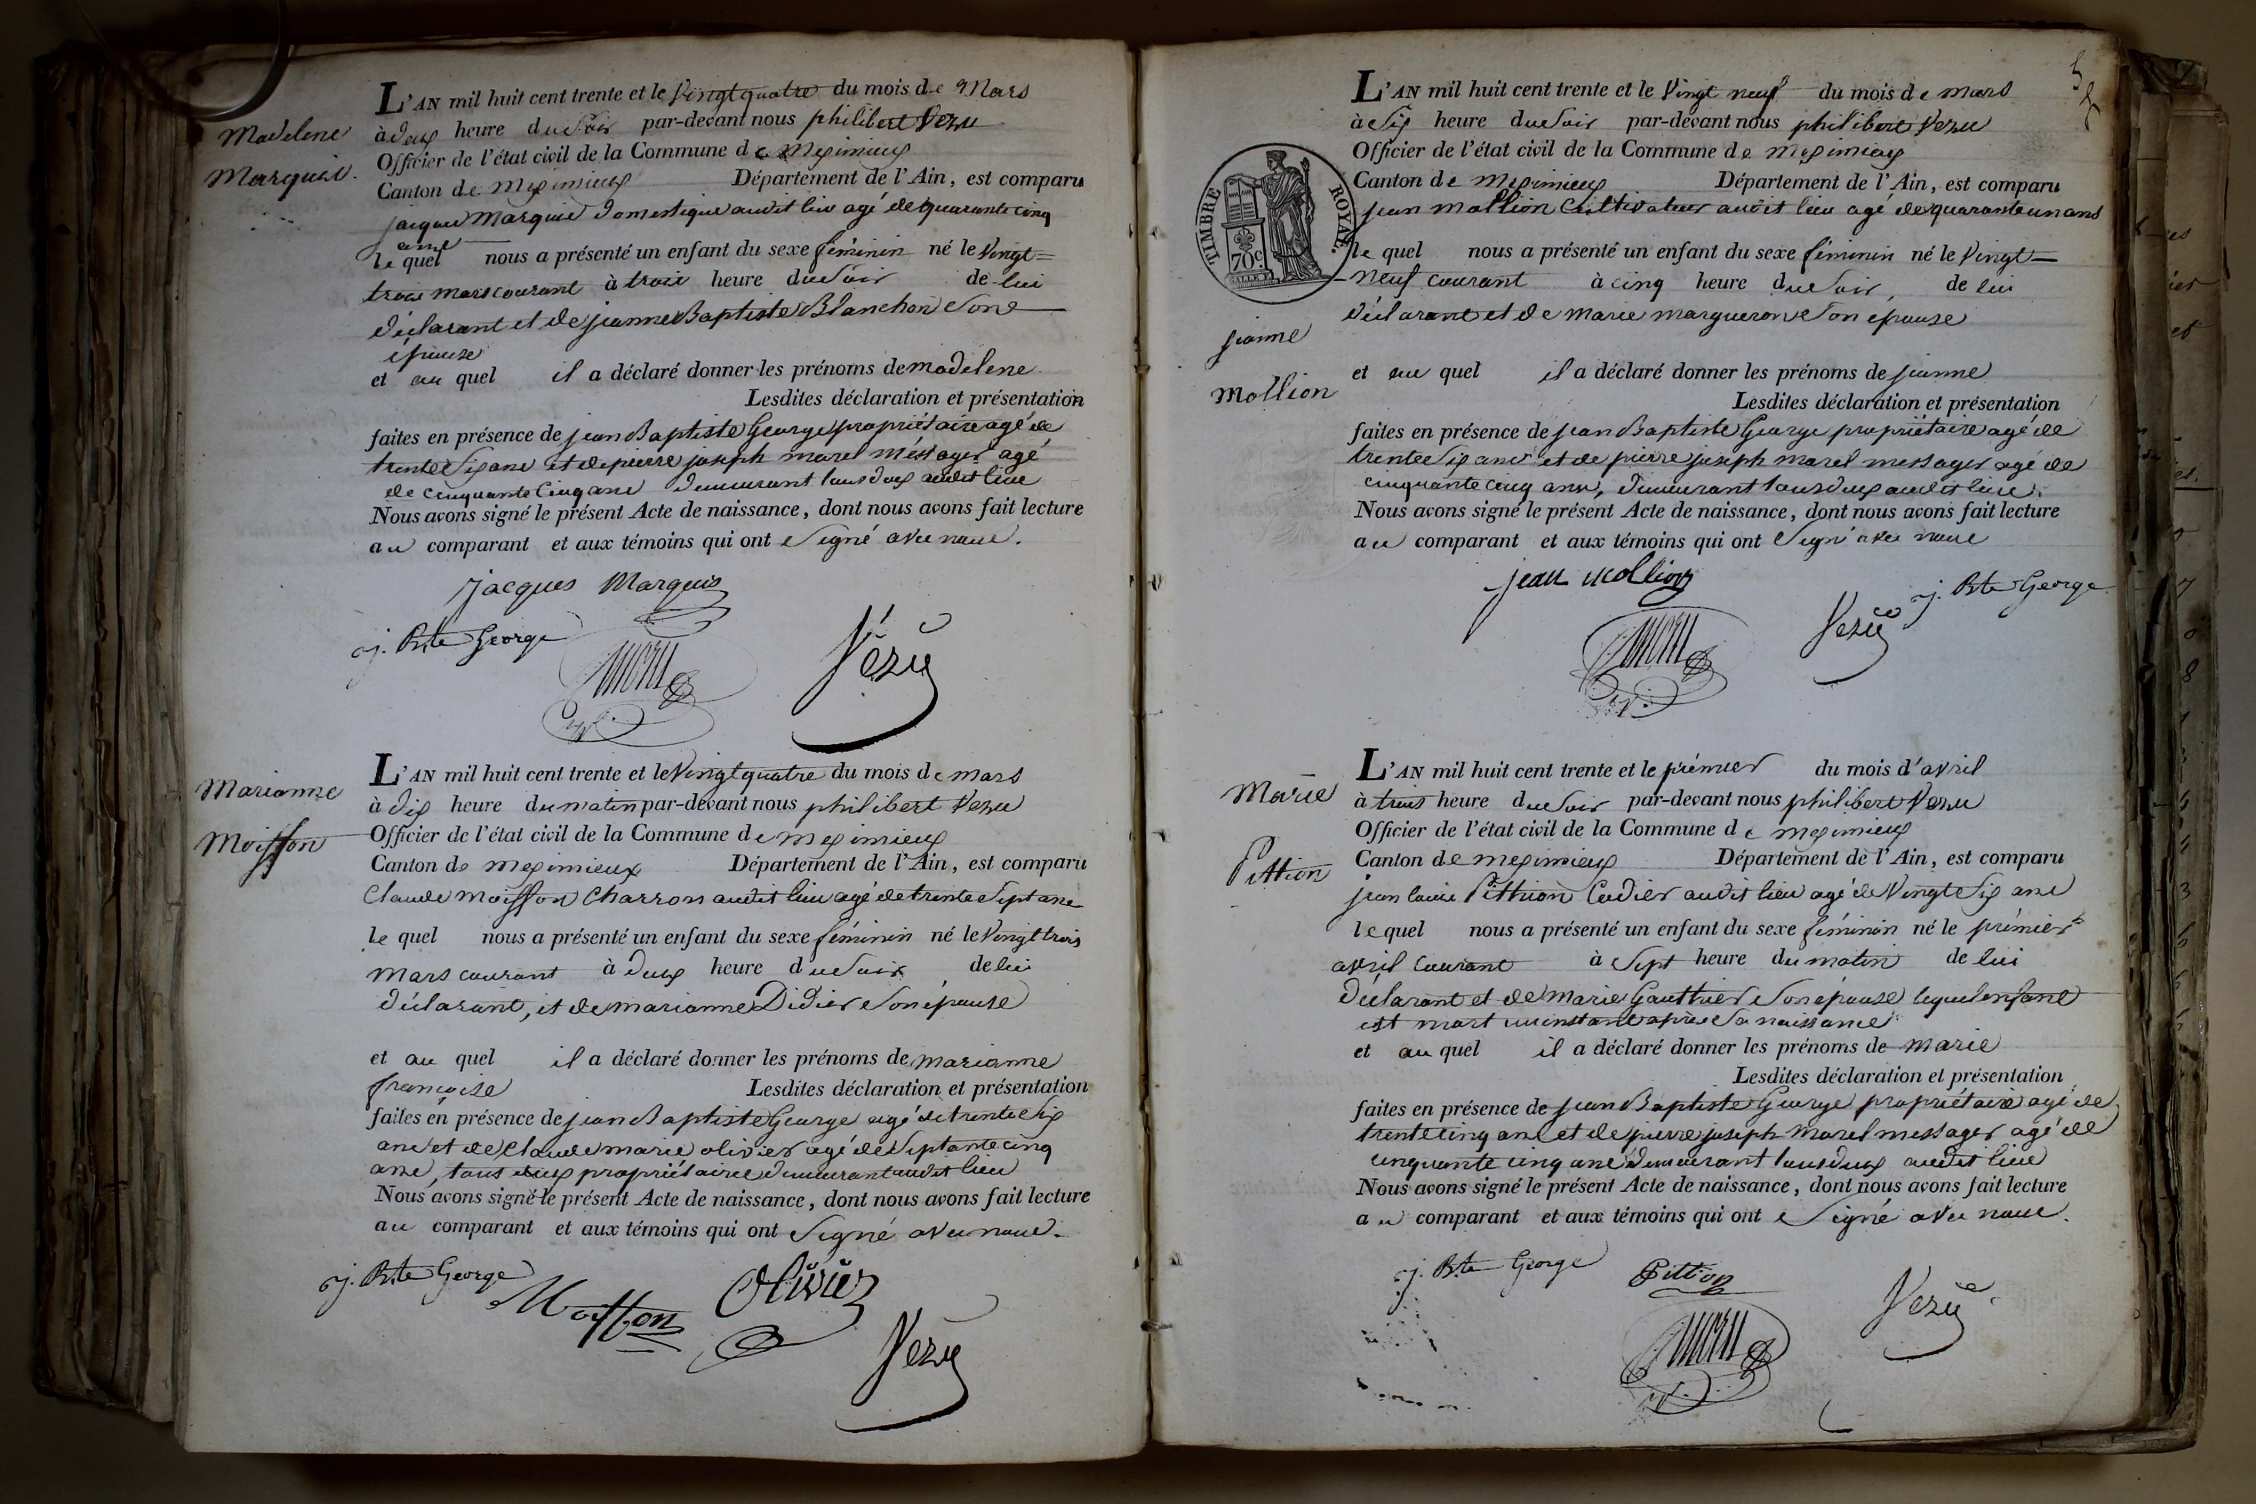 Madelene
Marquis.
L'AN mil huit cent trente et le Vingt quatre du mois de Mars
à deux heure du Soir par-devant nous philibert Vezu
Officier de l'état civil de la Commune de Meximieux
Canton de Meximieux Département de l'Ain, est comparu
jacques Marquis domestique audit lieu agé de quarante cinq
ans
le quel nous a présenté un enfant du sexe féminin né le Vingt=
trois mars courant à trois heure du Soir de lui
déclarant et de jeanne Baptiste Blanchon Son
épouse
et au quel il a déclaré donner les prénoms de madelene
Lesdites déclaration et présentation
faites en présence de jean Baptiste George propriétaire agé de
trente Six ans et de pierre joseph morel méssager agé
de cinquante Cinq ans demeurant tous deux audit lieu
Nous avons signé le présent Acte de naissance, dont nous avons fait lecture
au comparant et aux témoins qui ont Signé avec nous.
jacques Marquis
j. Bte George
Vezu
Marianne
Moisson
L'AN mil huit cent trente et le Vingt quatre du mois de mars
à dix heure du matin par-devant nous philibert Vezu
Officier de l'état civil de la Commune de Meximieux
Canton de Meximieux Département de l'Ain, est comparu
Claude Moisson Charron audit lieu agé de trente Sept ans
le quel nous a présenté un enfant du sexe féminin né le Vingt trois
mars courant à deux heure du Soir de lui
déclarant, et de marianne Didier Son épouse
et au quel il a déclaré donner les prénoms de marianne
françoise Lesdites déclaration et présentation
faites en présence de jean Baptiste George agé de trente Six
ans et de Claude marie olivier agé de Septante cinq
ans, tous deux propriétaires demeurant audit lieu
Nous avons signé le présent Acte de naissance, dont nous avons fait lecture
au comparant et aux témoins qui ont Signé avec nous.
j. Bte George
Moisson
Olivier
Vezu
TIMBRE ROYAL
70c
jeanne
Mollion
L'AN mil huit cent trente et le Vingt neuf du mois de mars
à Six heure du Soir par-devant nous philibert Vezu
Officier de l'état civil de la Commune de Meximieux
Canton de Meximieux Département de l'Ain, est comparu
jean mollion Cultivateur audit lieu agé de quarante un ans
le quel nous a présenté un enfant du sexe féminin né le Vingt
neuf courant à cinq heure du Soir, de lui
déclarant et de marie margueron Son épouse
et au quel il a déclaré donner les prénoms de jeanne
Lesdites déclaration et présentation
faites en présence de jean Baptiste George propriétaire agé de
trente Six ans et de pierre joseph morel messager agé de
cinquante cinq ans, demeurant tous deux audit lieu.
Nous avons signé le présent Acte de naissance, dont nous avons fait lecture
au comparant et aux témoins qui ont Signé avec nous
jean mollion
j. Bte George
Vezu
Marie
Pittion
L'AN mil huit cent trente et le prémier du mois d'avril
à trois heure du Soir par-devant nous philibert Vezu
Officier de l'état civil de la Commune de meximieux
Canton de meximieux Département de l'Ain, est comparu
jean louis Pittion Cordier audit lieu agé de Vingt Six ans
le quel nous a présenté un enfant du sexe féminin né le prémier
avril Courant à Sept heure du matin de lui
déclarant et de Marie Gauthier Son épouse lequel enfant
est mort un instant après Sa naissance
et au quel il a déclaré donner les prénoms de marie
Lesdites déclaration et présentation
faites en présence de jean Baptiste George propriétaire agé de
trente cinq ans et de pierre joseph Morel messager agé de
cinquante cinq ans demeurant tous deux audit lieu
Nous avons signé le présent Acte de naissance, dont nous avons fait lecture
au comparant et aux témoins qui ont Signé avec nous.
j. Bte George
Pittion
Vezu